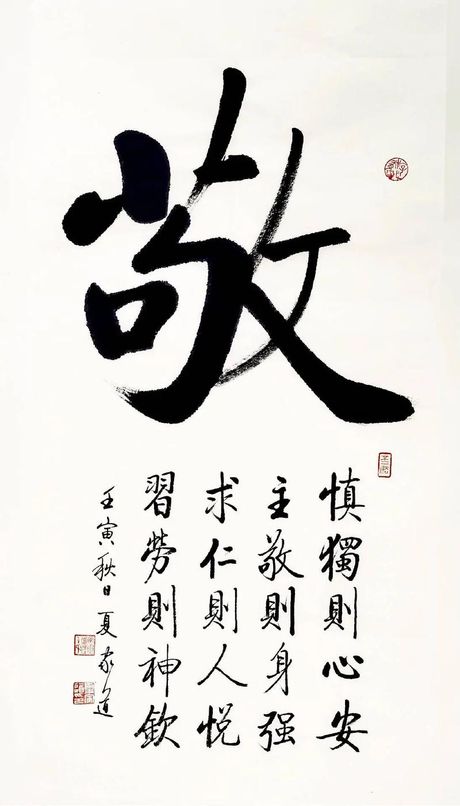 敬
慎獨則心安
主敬則身强
求仁則人悦
習勞則神欽
壬寅秋日夏家道